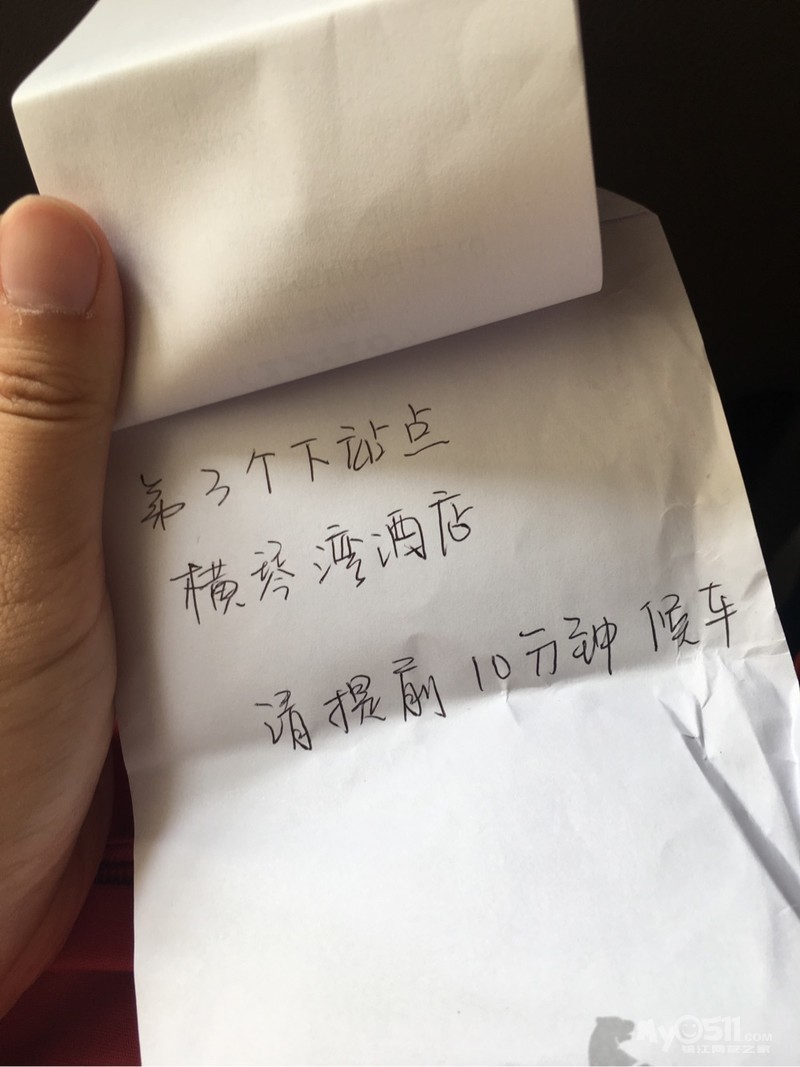 第3个下站点
横琴湾酒店
请提前10分钟候车
My0511.COM